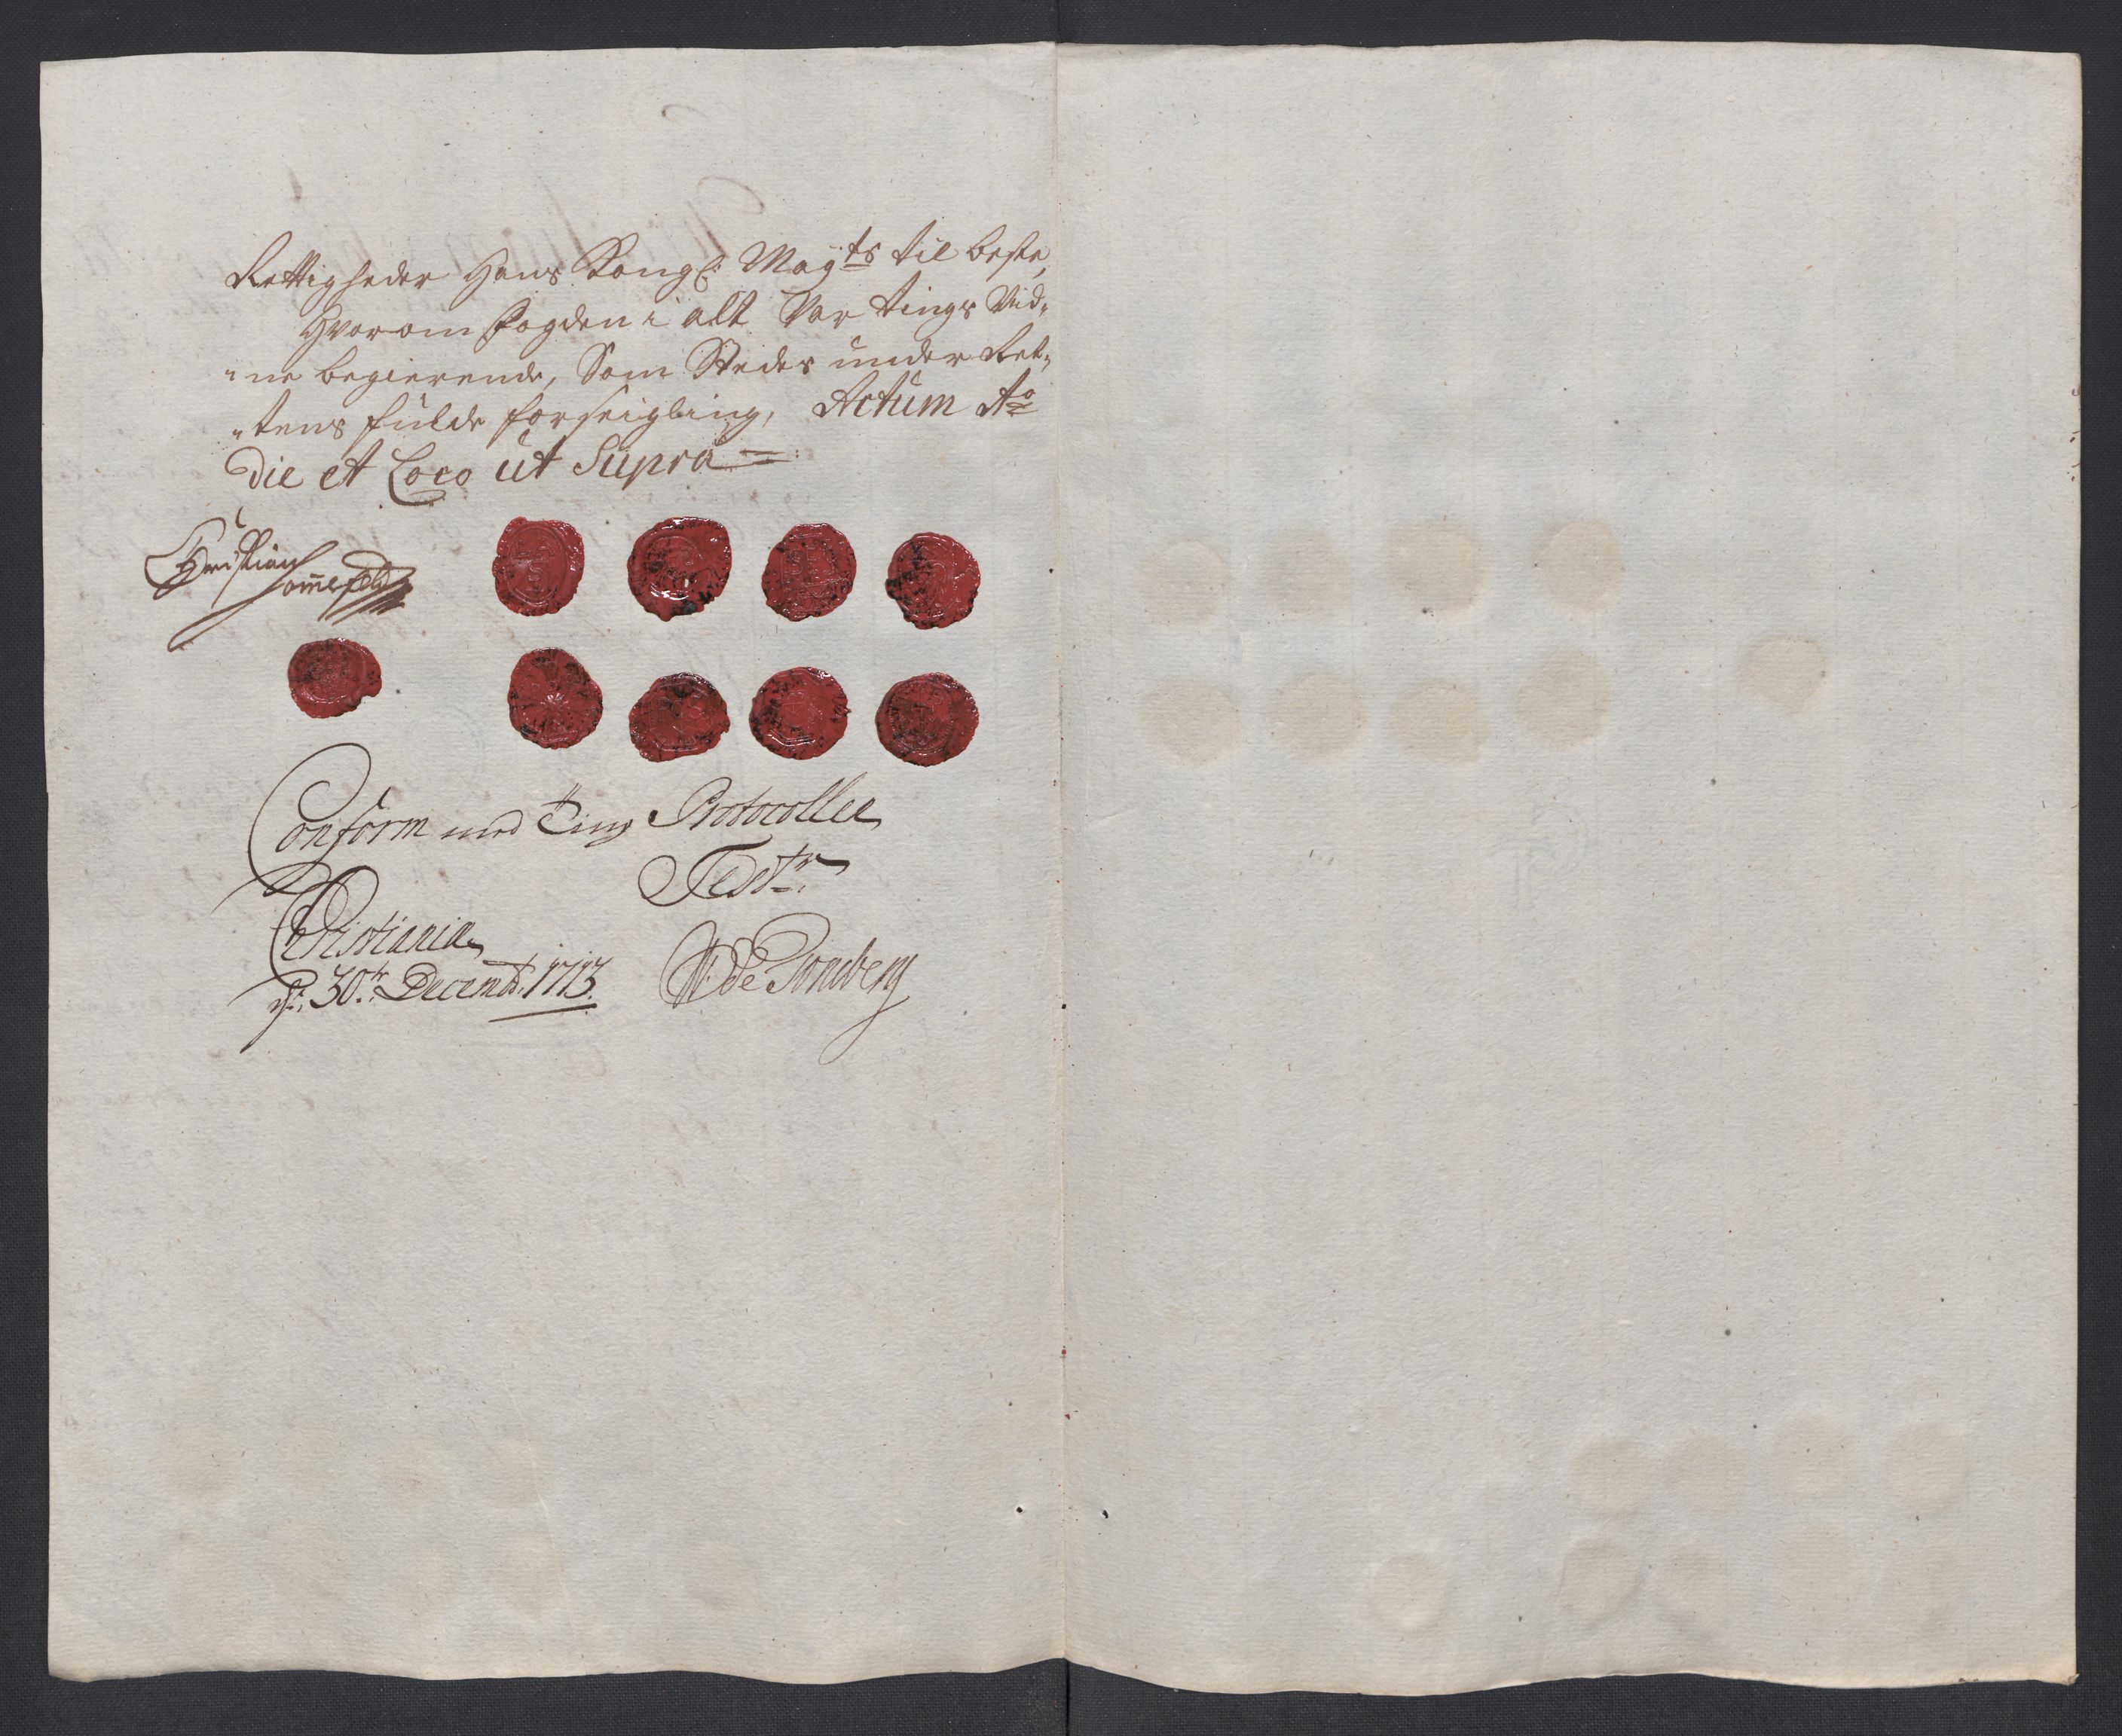 Rettigheder Hans Kongl: Mayts til beste,
Hvorom Fogden i alt Var tings Vid„
„ne begierende, Som Stedes under Ret„
„tens fulde forseigling, Actum Ao
Die et Loco ut Supra
Christian
Sommefeldt
Conform med Ting Protocollen
Test:
Christiania
d: 30te: Decemb: 1713.
W: de Tonsberg